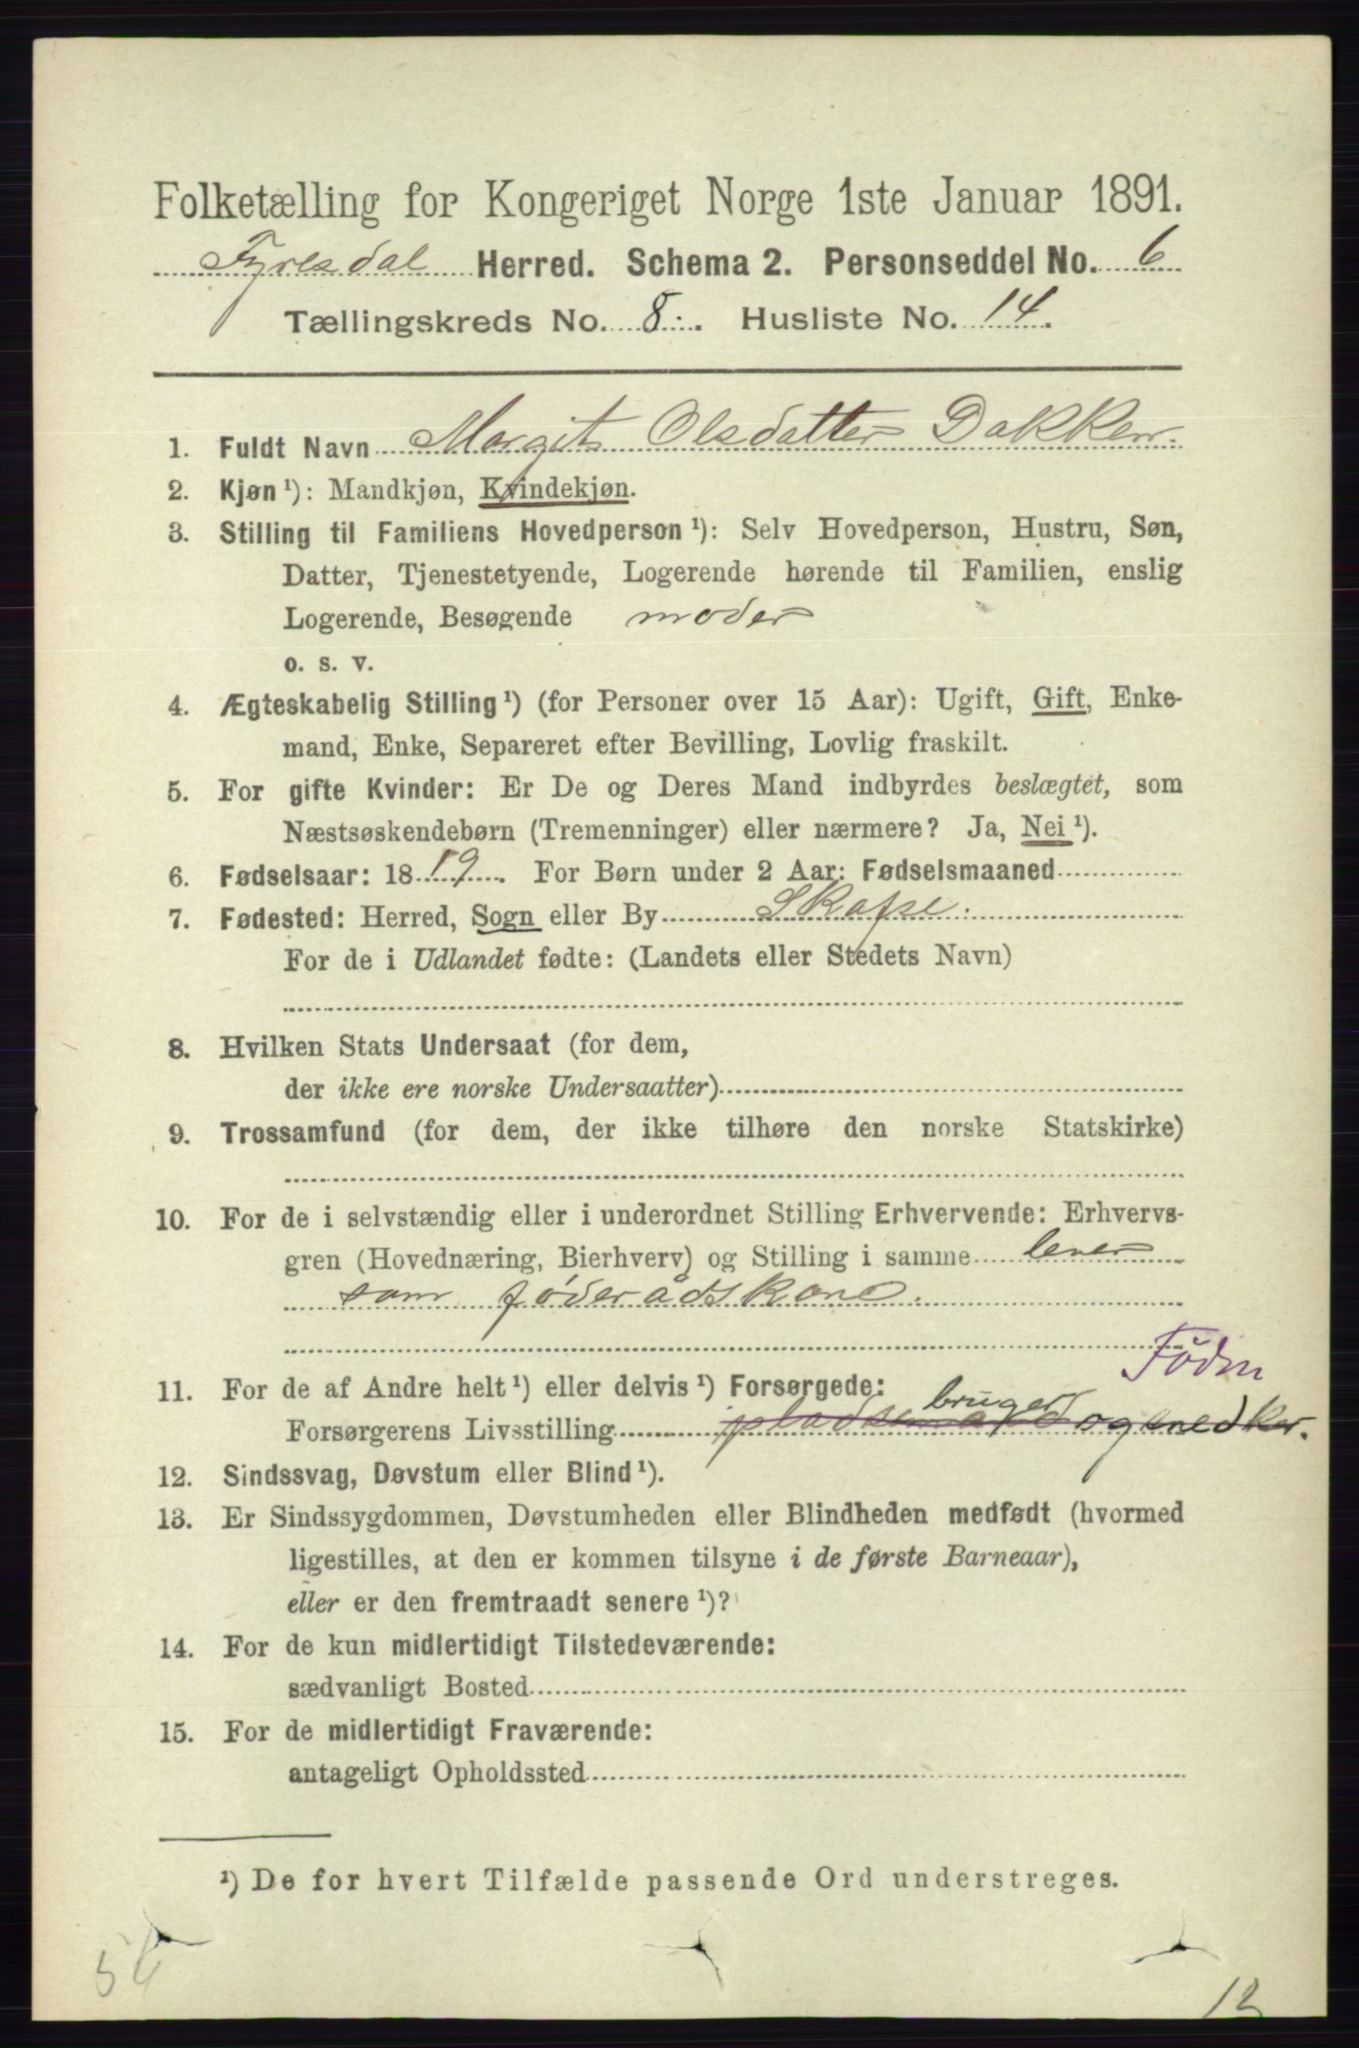 Folketælling for Kongeriget Norge 1ste Januar 1891.
Fyresdal Herred. Schema 2. Personseddel No. 6
Tællingskreds No. 8. Husliste No. 14.
1. Fuldt Navn Margit Olsdatter Dakken.
2. Kjøn ¹): Mandkjøn, Kvindekjøn.
3. Stilling til Familiens Hovedperson ¹): Selv Hovedperson, Hustru, Søn,
Datter, Tjenestetyende, Logerende hørende til Familien, enslig
Logerende, Besøgende moder
o. s. v.
4. Ægteskabelig Stilling ¹) (for Personer over 15 Aar): Ugift, Gift, Enke-
mand, Enke, Separeret efter Bevilling, Lovlig fraskilt.
5. For gifte Kvinder: Er De og Deres Mand indbyrdes beslægtet, som
Næstsøskendebørn (Tremenninger) eller nærmere? Ja, Nei ¹).
6. Fødselsaar: 1819. For Børn under 2 Aar: Fødselsmaaned
7. Fødested: Herred, Sogn eller By Skafse.
For de i Udlandet fødte: (Landets eller Stedets Navn)
8. Hvilken Stats Undersaat (for dem,
der ikke ere norske Undersaatter)
9. Trossamfund (for dem, der ikke tilhøre den norske Statskirke)
10. For de i selvstændig eller i underordnet Stilling Erhvervende: Erhvervs-
gren (Hovednæring, Bierhverv) og Stilling i samme lever
som føderådskone.
Föder
11. For de af Andre helt ¹) eller delvis ¹) Forsørgede:
bruger
Forsørgerens Livsstilling pladsmand og snedker.
12. Sindssvag, Døvstum eller Blind ¹).
13. Er Sindssygdommen, Døvstumheden eller Blindheden medfødt (hvormed
ligestilles, at den er kommen tilsyne i de første Barneaar),
eller er den fremtraadt senere ¹)?
14. For de kun midlertidigt Tilstedeværende:
sædvanligt Bosted
15. For de midlertidigt Fraværende:
antageligt Opholdssted
¹) De for hvert Tilfælde passende Ord understreges.
12